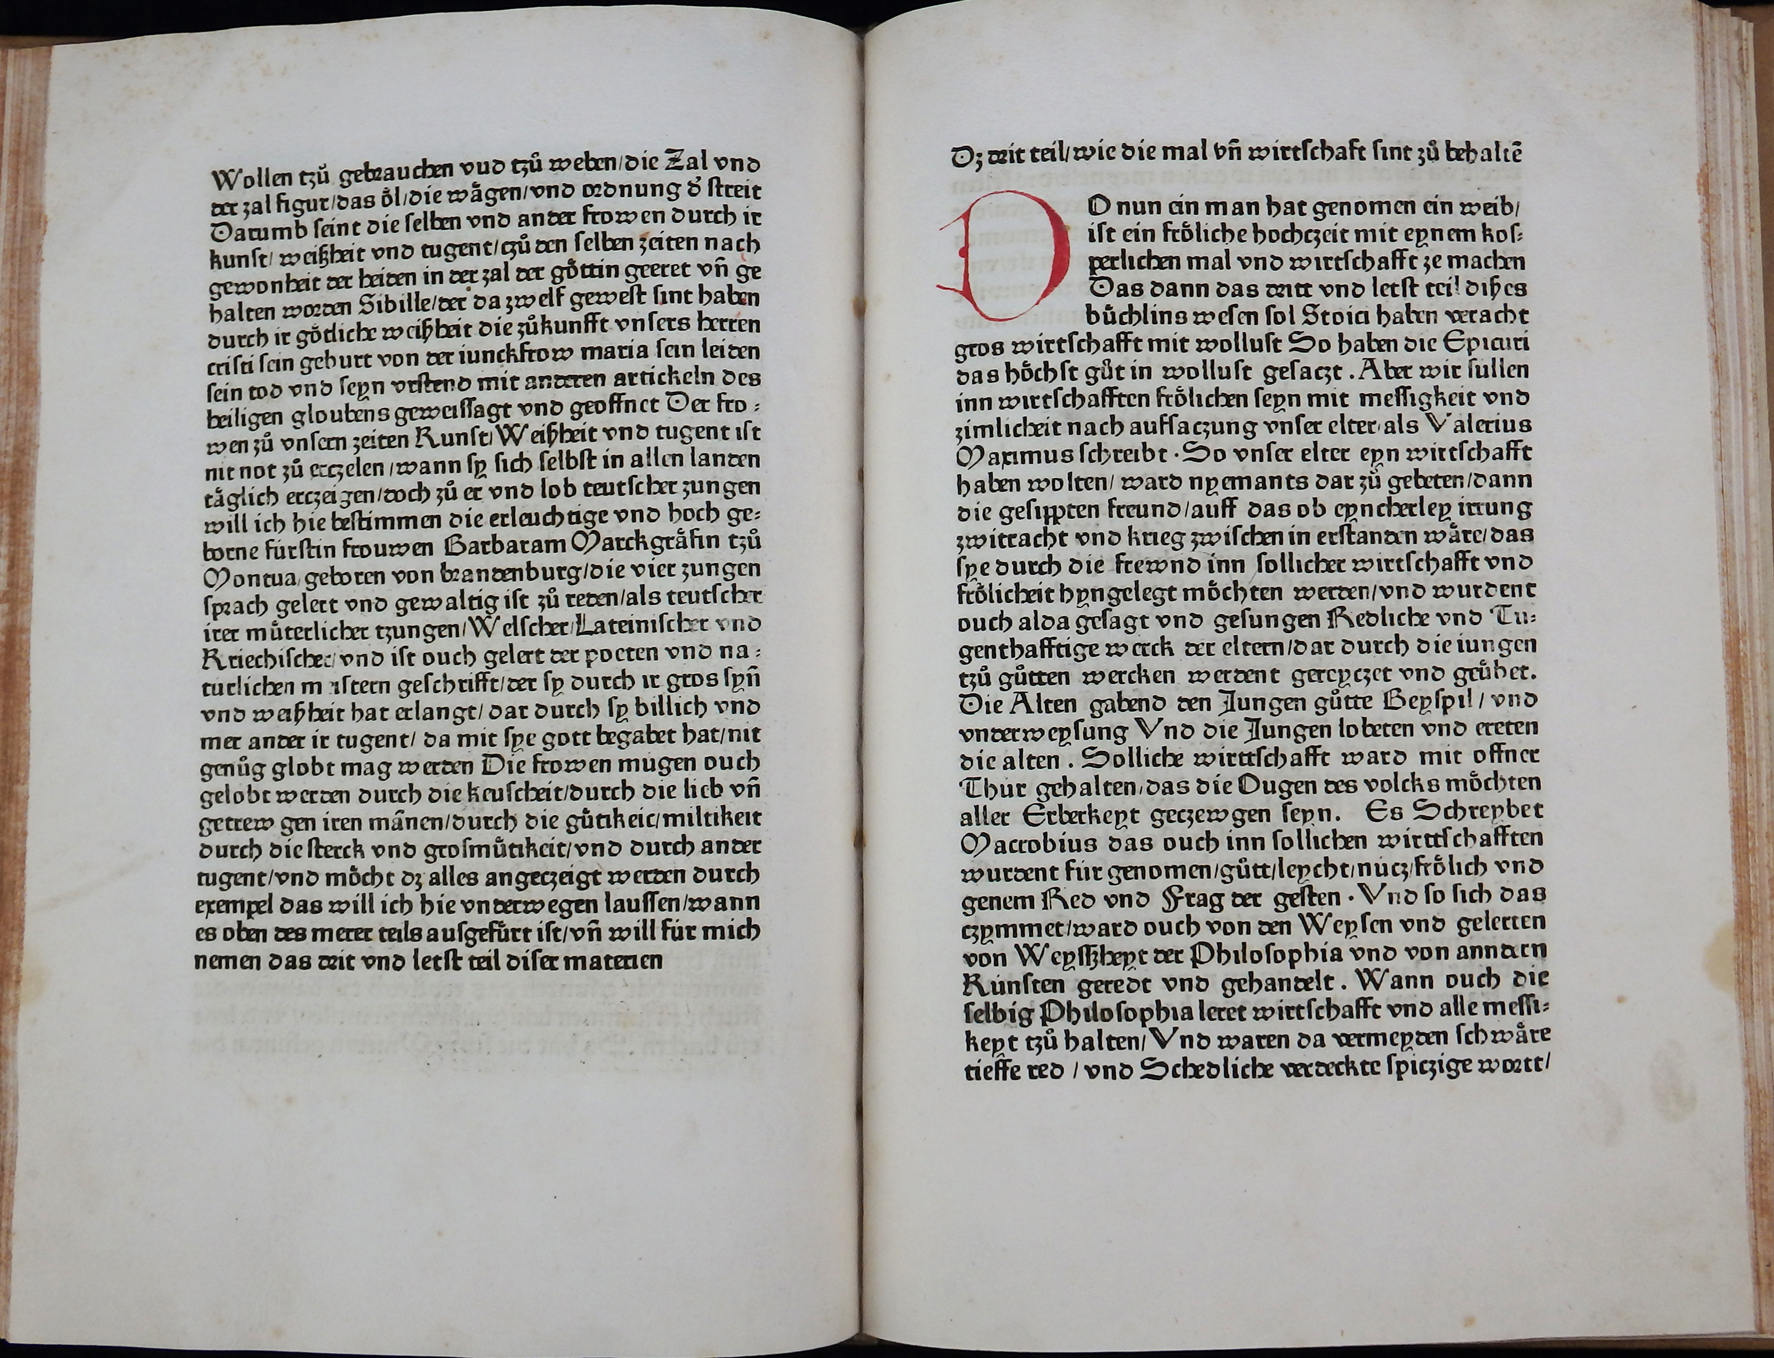 Wollen tzů gebrauchen vud tzů weben/die Zal vnd
der zal figur/das ȯl/die wågen/vnd ordnung d' streit
Darumb seint die selben vnd ander frowen durch ir
kunst/ weißheit vnd tugent/czů den selben zeiten nach
gewonheit der heiden in der zal der gȯttin geeret vn̄ ge
halten worden Sibille/der da zwelf gewest sint haben
durch ir gȯtliche weißheit die zůkunfft vnsers herren
cristi sein geburt von der iunckfrow maria sein leiden
sein tod vnd seyn vrstend mit anderen artickeln des
heiligen gloubens geweissagt vnd geoffnet Der fro⸗
wen zů vnsern zeiten Kunst/ Weißheit vnd tugent ist
nit not zů erczelen/wann sy sich selbst in allen landen
tåglich erczeigen/doch zů er vnd lob teutscher zungen
will ich hie bestimmen die erleuchtige vnd hoch ge⸗
borne fúrstin frouwen Barbaram Marckgråfin tzů
Montua/geboren von brandenburg/die vier zungen
sprach gelert vnd gewaltig ist zů reden/als teutscher
irer můterlicher tzungen/Welscher/Lateinischer vnd
Kriechischer/vnd ist ouch gelert der poeten vnd na⸗
turlichen meistern geschrifft/der sy durch ir gros syn̄
vnd weißheit hat erlangt/ dar durch sy billich vnd
mer ander ir tugent/ da mit sye gott begabet hat/nit
genůg globt mag werden Die frowen mugen ouch
gelobt werden durch die keuscheit/durch die lieb vn̄
getrew gen iren mãnen/durch die gůtikeit/miltikeit
durch die sterck vnd grosmůtikeit/vnd durch ander
tugent/vnd mȯcht dz alles angeczeigt werden durch
exempel das will ich hie vnderwegen laussen/wann
es oben des merer teils ausgefúrt ist/vn̄ will fúr mich
nemen das drit vnd letst teil diser materien
Dz drit teil/wie die mal vn̄ wirtschaft sint zů behaltē
DO nun ein man hat genomen ein weib/
ist ein frȯliche hochczeit mit eynem kos⸗
perlichen mal vnd wirtschafft ze machen
Das dann das dritt vnd letst teil dißes
bůchlins wesen sol Stoici haben veracht
gros wirtschafft mit wollust So haben die Epicuri
das hȯchst gůt in wollust gesaczt . Aber wir sullen
inn wirtschafften frȯlichen seyn mit messigkeit vnd
zimlicheit nach auffsaczung vnser elter/als Valerius
Maximus schreibt · So vnser elter eyn wirtschafft
haben wolten/ ward nyemants dar zů gebeten/dann
die gesippten freund/auff das ob eyncherley irrung
zwitracht vnd krieg zwischen in erstanden wåre/das
sye durch die frewnd inn sollicher wirtschafft vnd
frȯlicheit hyngelegt mȯchten werden/vnd wurdent
ouch alda gesagt vnd gesungen Redliche vnd Tu⸗
genthafftige werck der eltern/dar durch die iungen
tzů gůtten wercken werdent gereyczet vnd geůbet.
Die Alten gabend den Jungen gůtte Beyspil / vnd
vnderweysung Vnd die Jungen lobeten vnd ereten
die alten . Solliche wirttschafft ward mit offner
Thúr gehalten/das die Ougen des volcks mȯchten
aller Erberkeyt geczewgen seyn. Es Schreybet
Macrobius das ouch inn sollichen wirttschafften
wurdent fúr genomen/gůtt/leycht/nucz/frȯlich vnd
genem Red vnd Frag der gesten · Vnd so sich das
czymmet/ward ouch von den Weysen vnd gelerten
von Weyßheyt der Philosophia vnd von anndern
Kúnsten geredt vnd gehandelt . Wann ouch die
selbig Philosophia leret wirtschafft vnd alle messi⸗
keyt tzů halten/ Vnd waren da vermeyden schwåre
tieffe red / vnd Schedliche verdeckte spiczige wortt/